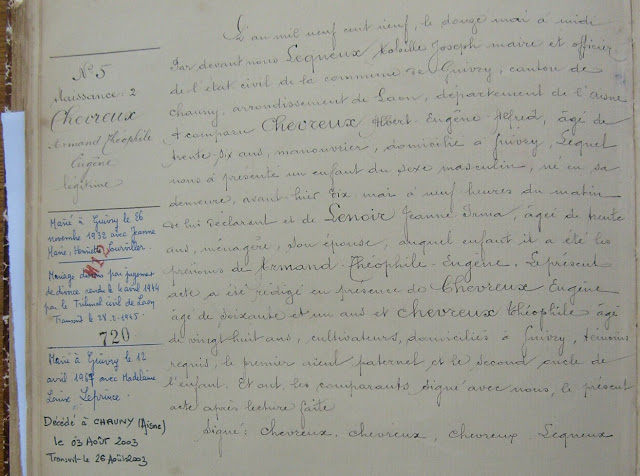 N° 5
Naissance: 2
Chevreux
Armand Théophile
Eugène
légitime
Marié à Guivry le 26
novembre 1932 avec Jeanne
Marie, Henriette
Mariage dissous par jugement
de divorce rendu le 4 avril 1944
par le Tribunal civil de Laon
Transcrit le 28.2.1945.
720
Marié à Guivry le 12
avril 1967 avec Madeleine
Louise Leprince.
Décédé à CHAUNY (Aisne)
le 03 Août 2003
Transcrit le 26 Août 2003
L'an mil neuf cent neuf, le douze mai à midi
Par devant nous Lequeux Joseph maire et officier
de l'état civil de la commune de Guivry, canton de
Chauny, arrondissement de Laon, département de l'Aisne
a comparu Chevreux Albert-Eugène-Alfred, âgé de
trente-six ans, manouvrier, domicilié à Guivry, Lequel
nous a présenté un enfant du sexe masculin, né en sa
demeure, avant-hier dix mai à neuf heures du matin
de lui déclarant et de Lenoir Jeanne Irma, âgée de trente
ans, ménagère, son épouse, auquel enfant il a été les
prénoms de Armand-Théophile-Eugène. Le présent
acte a été rédigé en présence de Chevreux Eugène
âgé de soixante et un ans et Chevreux Théophile âgé
de vingt huit ans, cultivateurs, domiciliés à Guivry, témoins
requis, le premier aïeul paternel et le second oncle de
l'enfant. Et ont, les comparants, signé avec nous, le présent
acte après lecture faite
Signé: Chevreux. Chevreux, Chevreux. Lequeux